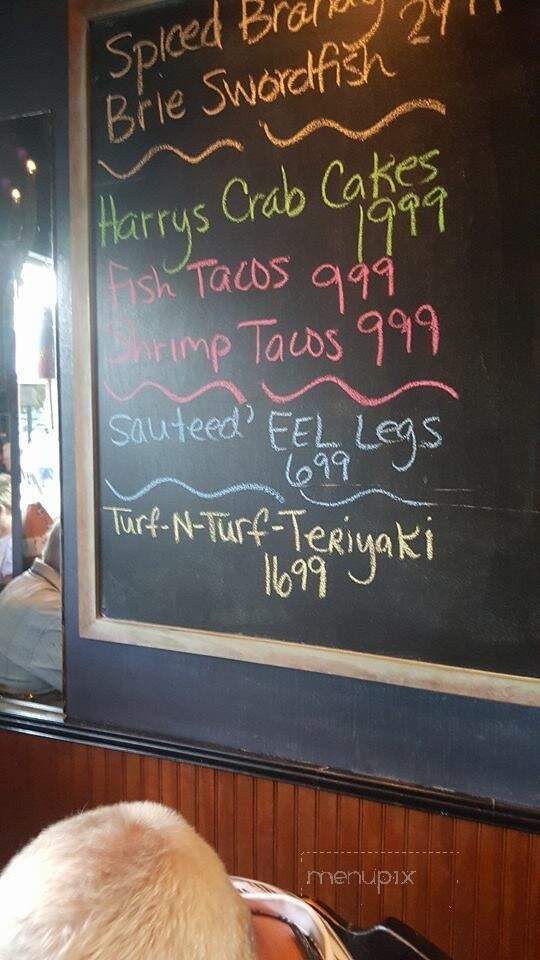 Spiced Brandy 2499
Brie Swordfish
Harrys Crab Cakes
1999
Fish Tacos 999
Shrimp Tacos 999
Sauteed' EEL Legs
699
Turf-N-Turf-Teriyaki
1699
menupix